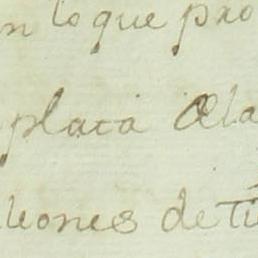 n lo que pro
plata Ala
leones de Ti